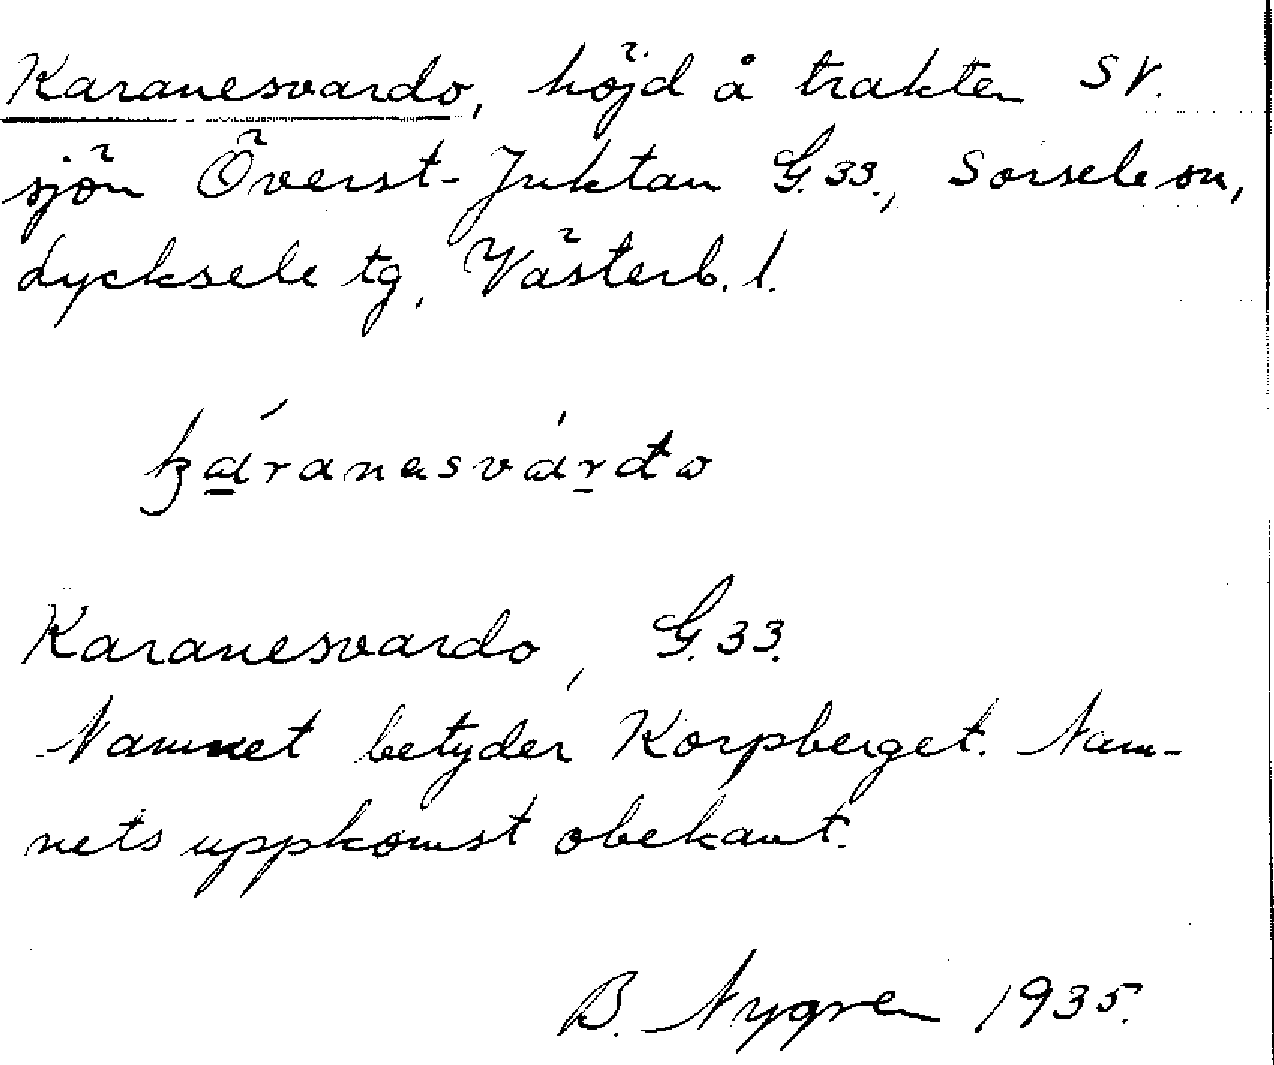 Karanesvardo, höjd å trakten SV.
sjön Överst-Juktan G.33., Sorsele sn,
Lycksele tg, Västerb. l.
káranesvárdo
Karanesvardo, G.33.
Namnet betyder Korpberget. Nam-
nets uppkomst obekant.
B. Nygren 1935.